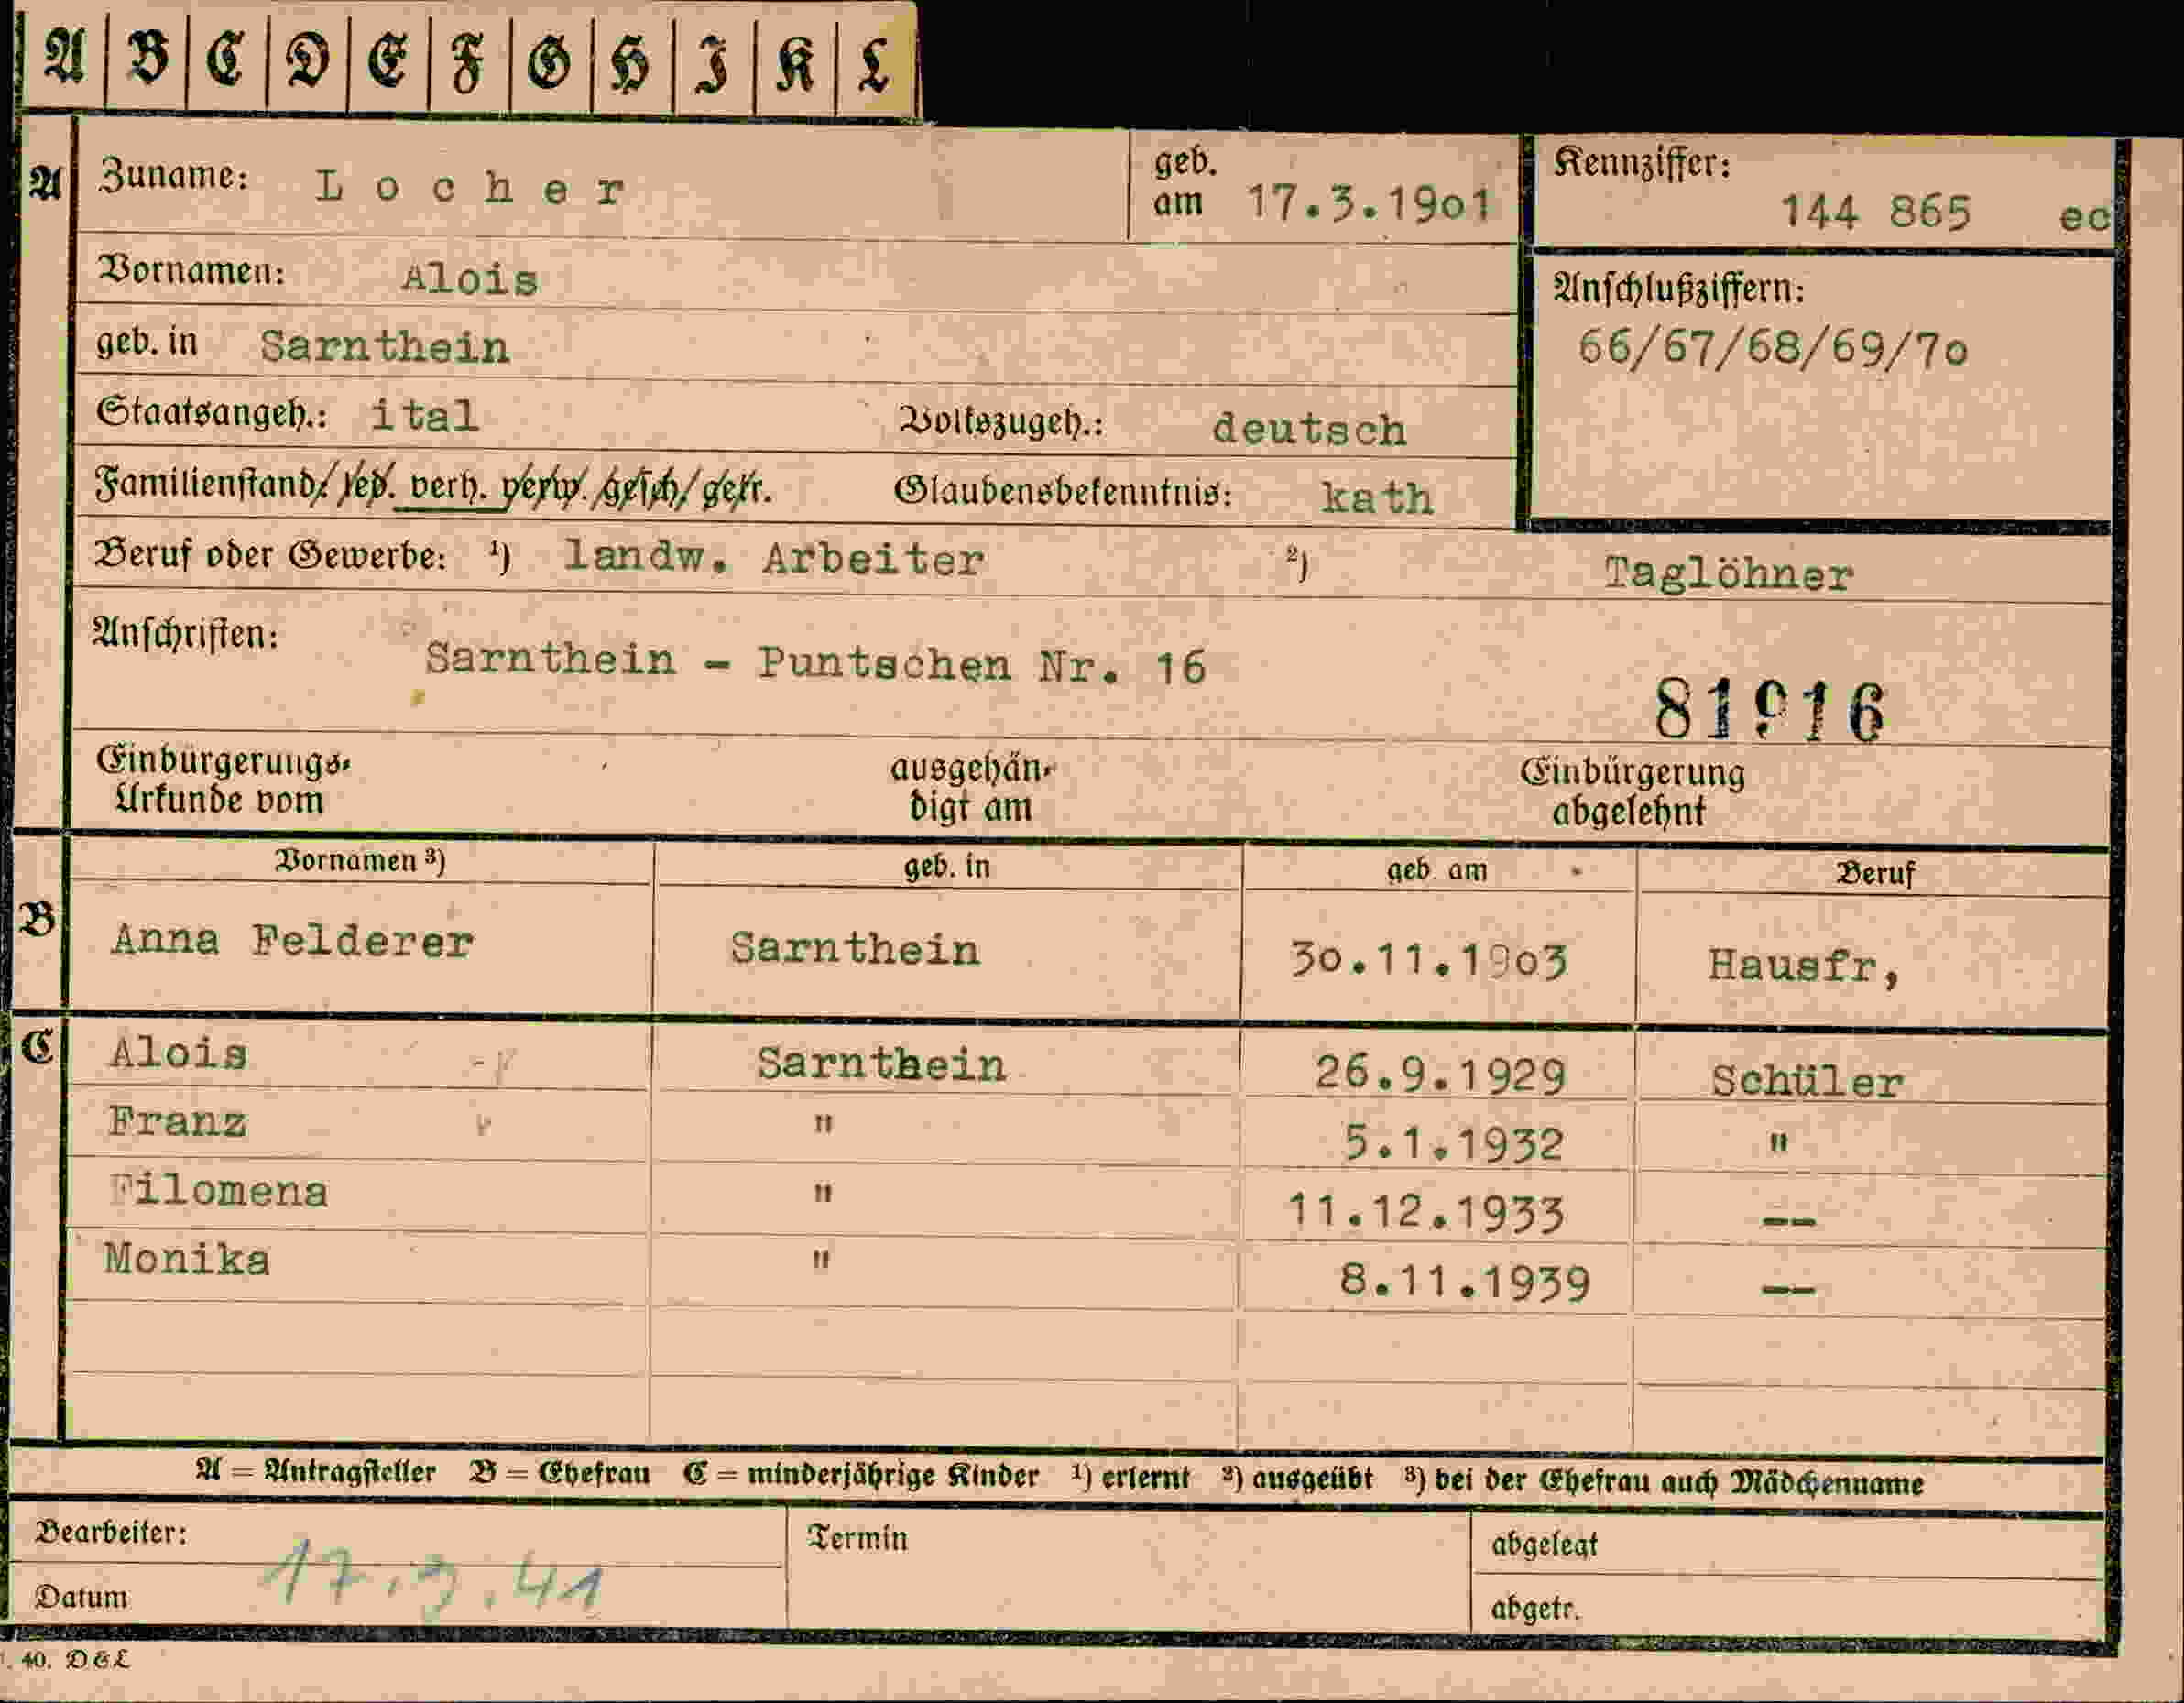 A B C D E F G H I K L
A Zuname: Locher geb. am 17.3.19o1 Kennziffer: 144 865 ec
Vornamen: Alois
Anschlußziffern:
geb. in Sarnthein 66/67/68/69/7o
Staatsangeh.: ital Volkszugeh.: deutsch
Familienstand/ led. verh. verw. gesch/ getr. Glaubensbekenntnis: kath
Beruf oder Gewerbe: ¹) landw. Arbeiter ²) Taglöhner
Anschriften: Sarnthein - Puntschen Nr. 16
Einbürgerungs- ausgehän- Einbürgerung
Urkunde vom digt am abgelehnt
Vornamen ³) geb. in geb. am Beruf
B Anna Felderer Sarnthein 3o.11.19o3 Hausfr,
C Alois Sarnthein 26.9.1929 Schüler
Franz " 5.1.1932 "
Filomena " 11.12.1933 --
Monika " 8.11.1939 --
A = Antragsteller B = Ehefrau C = minderjährige Kinder ¹) erlernt ²) ausgeübt ³) bei der Ehefrau auch Mädchenname
Bearbeiter: Termin abgelegt
Datum abgetr.
. 40. D&L